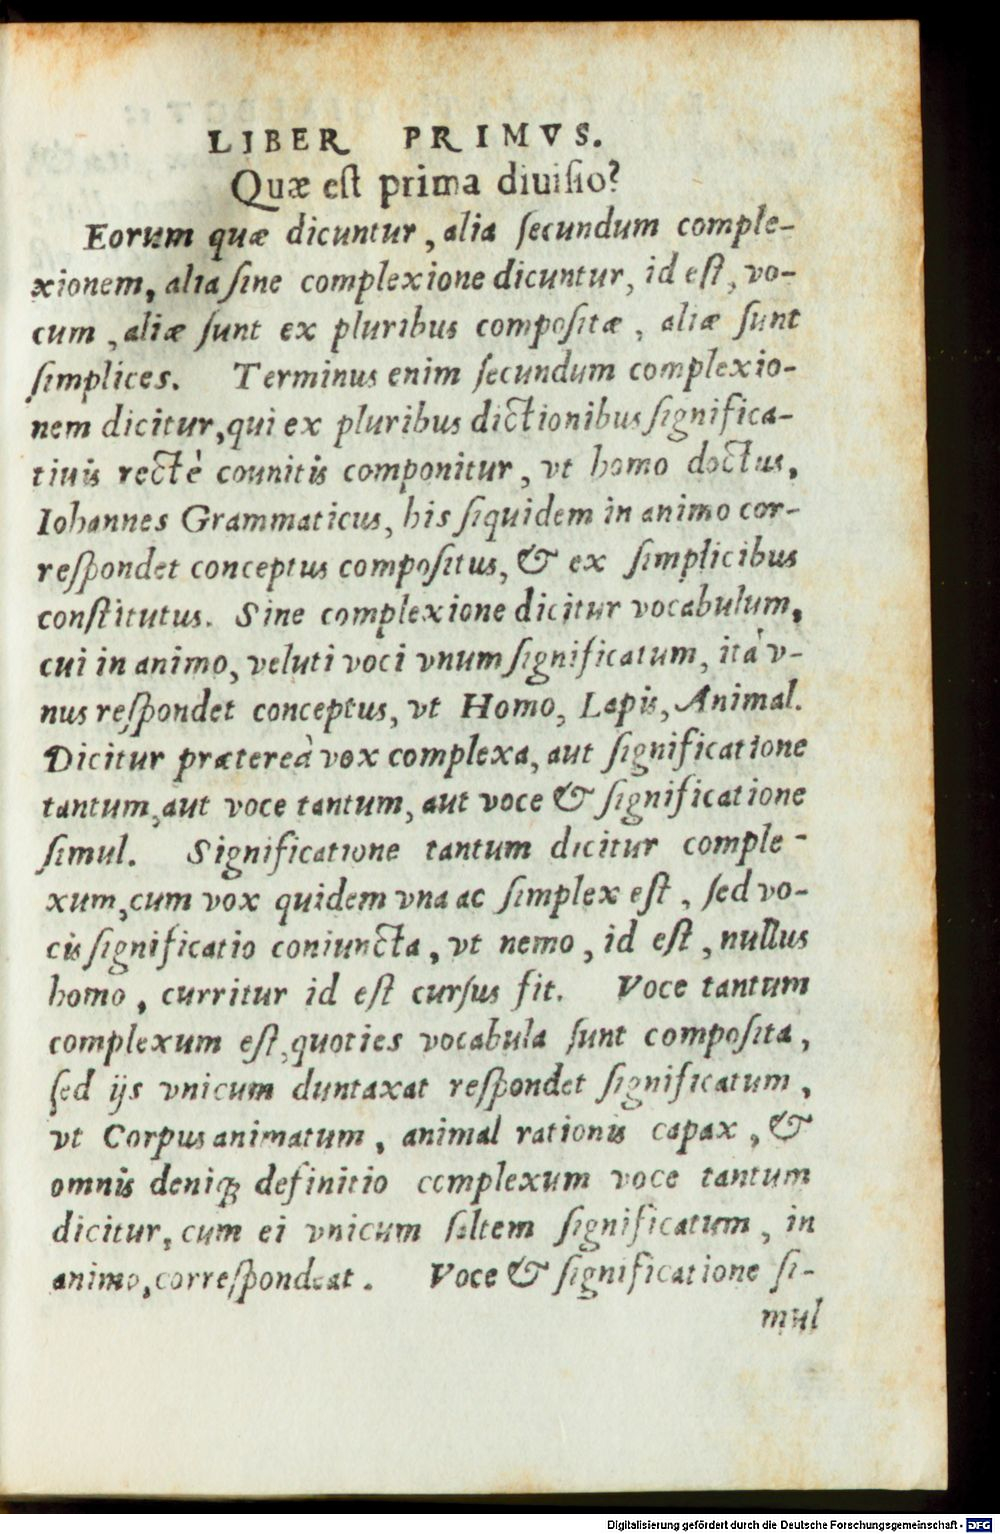 LIBER PRIMVS.
Quæ eſt prima diuiſio?
Eorum quæ dicuntur, alia ſecundum comple-
xionem, alia ſine complexione dicuntur, id eſt, vo-
cum, aliæ ſunt ex pluribus compoſitæ, aliæ ſunt
ſimplices. Terminus enim ſecundum complexio-
nem dicitur, qui ex pluribus dictionibus ſignifica-
tiuis rectè counitis componitur, vt homo doctus,
Iohannes Grammaticus, his ſiquidem in animo cor-
reſpondet conceptus compoſitus, & ex ſimplicibus
conſtitutus. Sine complexione dicitur vocabulum,
cui in animo, veluti voci vnum ſignificatum, ità v-
nus reſpondet conceptus, vt Homo, Lapis, Animal.
Dicitur prætereà vox complexa, aut ſignificatione
tantum, aut voce tantum, aut voce & ſignificatione
ſimul. Significatione tantum dicitur comple-
xum, cum vox quidem vna ac ſimplex eſt, ſed vo-
cis ſignificatio coniuncta, vt nemo, id eſt, nullus
homo, curritur id eſt curſus fit. Voce tantum
complexum eſt, quoties vocabula ſunt compoſita,
ſed ijs vnicum duntaxat reſpondet ſignificatum,
vt Corpus animatum, animal rationis capax, &
omnis deniq; definitio complexum voce tantum
dicitur, cum ei vnicum ſaltem ſignificatum, in
animo, correſpondeat. Voce & ſignificatione ſi-
mul
Digitalisierung gefördert durch die Deutsche Forschungsgemeinschaft - DFG